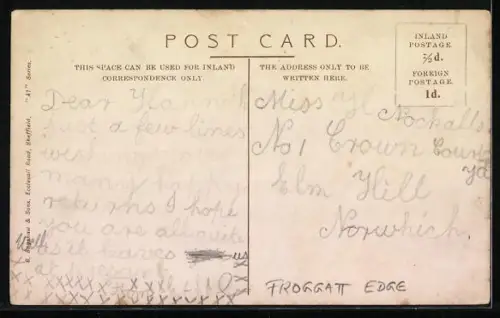 POST CARD.
THIS SPACE CAN BE USED FOR INLAND
CORRESPONDENCE ONLY.
THE ADDRESS ONLY TO BE
WRITTEN HERE.
INLAND
POSTAGE
½d.
FOREIGN
POSTAGE.
1d.
Sons, Ecclesall Road, Sheffield. "41" Series.
Dear
Just a few lines
wish
many happy
returns I hope
you are all quite
well as it leaves us
at present
Miss
Nockalls
No 1 Crown Court
Yd
Elm Hill
Norwhich
FROGGATT EDGE